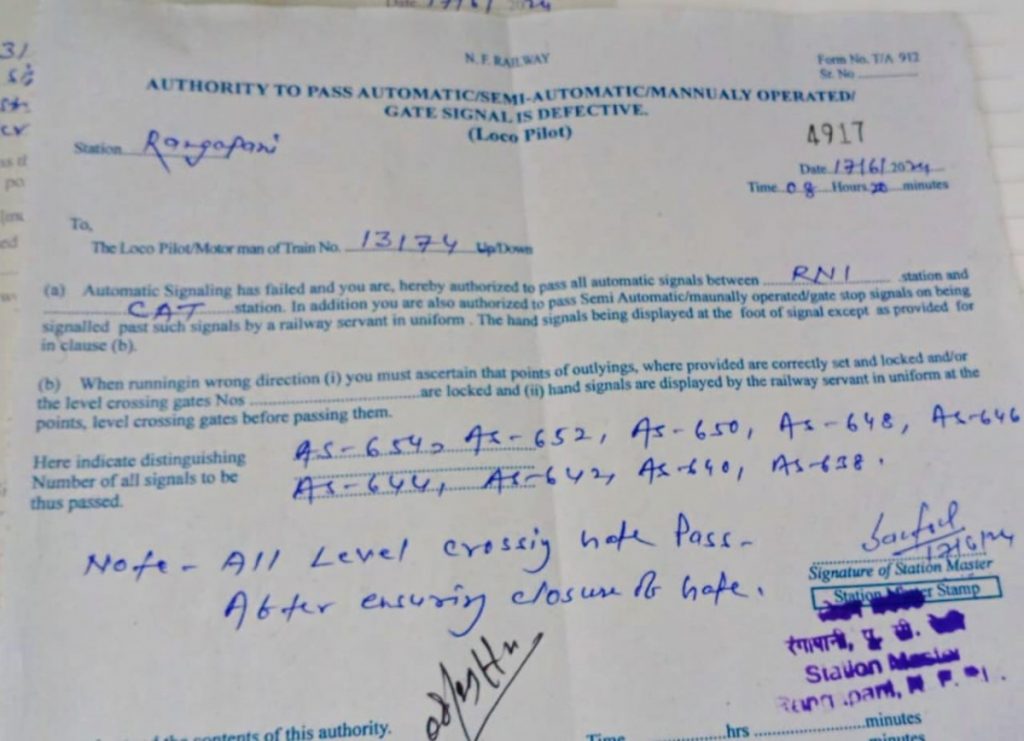 Date 17/6/2024
N. F. RAILWAY
Form No. T/A 912
Sr. No
AUTHORITY TO PASS AUTOMATIC/SEMI-AUTOMATIC/MANNUALY OPERATED/
GATE SIGNAL IS DEFECTIVE.
(Loco Pilot)
4917
Station Rangapani
Date 17/6/2024
Time 08 Hours 20 minutes
To,
The Loco Pilot/Motor man of Train No. 13174 Up/Down
(a) Automatic Signaling has failed and you are, hereby authorized to pass all automatic signals between RNI station and
CAT station. In addition you are also authorized to pass Semi Automatic/maunally operated/gate stop signals on being
signalled past such signals by a railway servant in uniform . The hand signals being displayed at the foot of signal except as provided for
in clause (b).
(b) When runningin wrong direction (i) you must ascertain that points of outlyings, where provided are correctly set and locked and/or
the level crossing gates Nos are locked and (ii) hand signals are displayed by the railway servant in uniform at the
points, level crossing gates before passing them.
Here indicate distinguishing
Number of all signals to be
thus passed.
AS-654, AS-652, AS-650, AS-648, AS-646
AS-644, AS-642, AS-640, AS-638.
Note - All Level crossig Pass-
After ensuring closure of
17/6/24
Signature of Station Master
Station Master Stamp
रंगापानी, पू. सी.
Station Master
contents of this authority.
Time hrs minutes
minutes